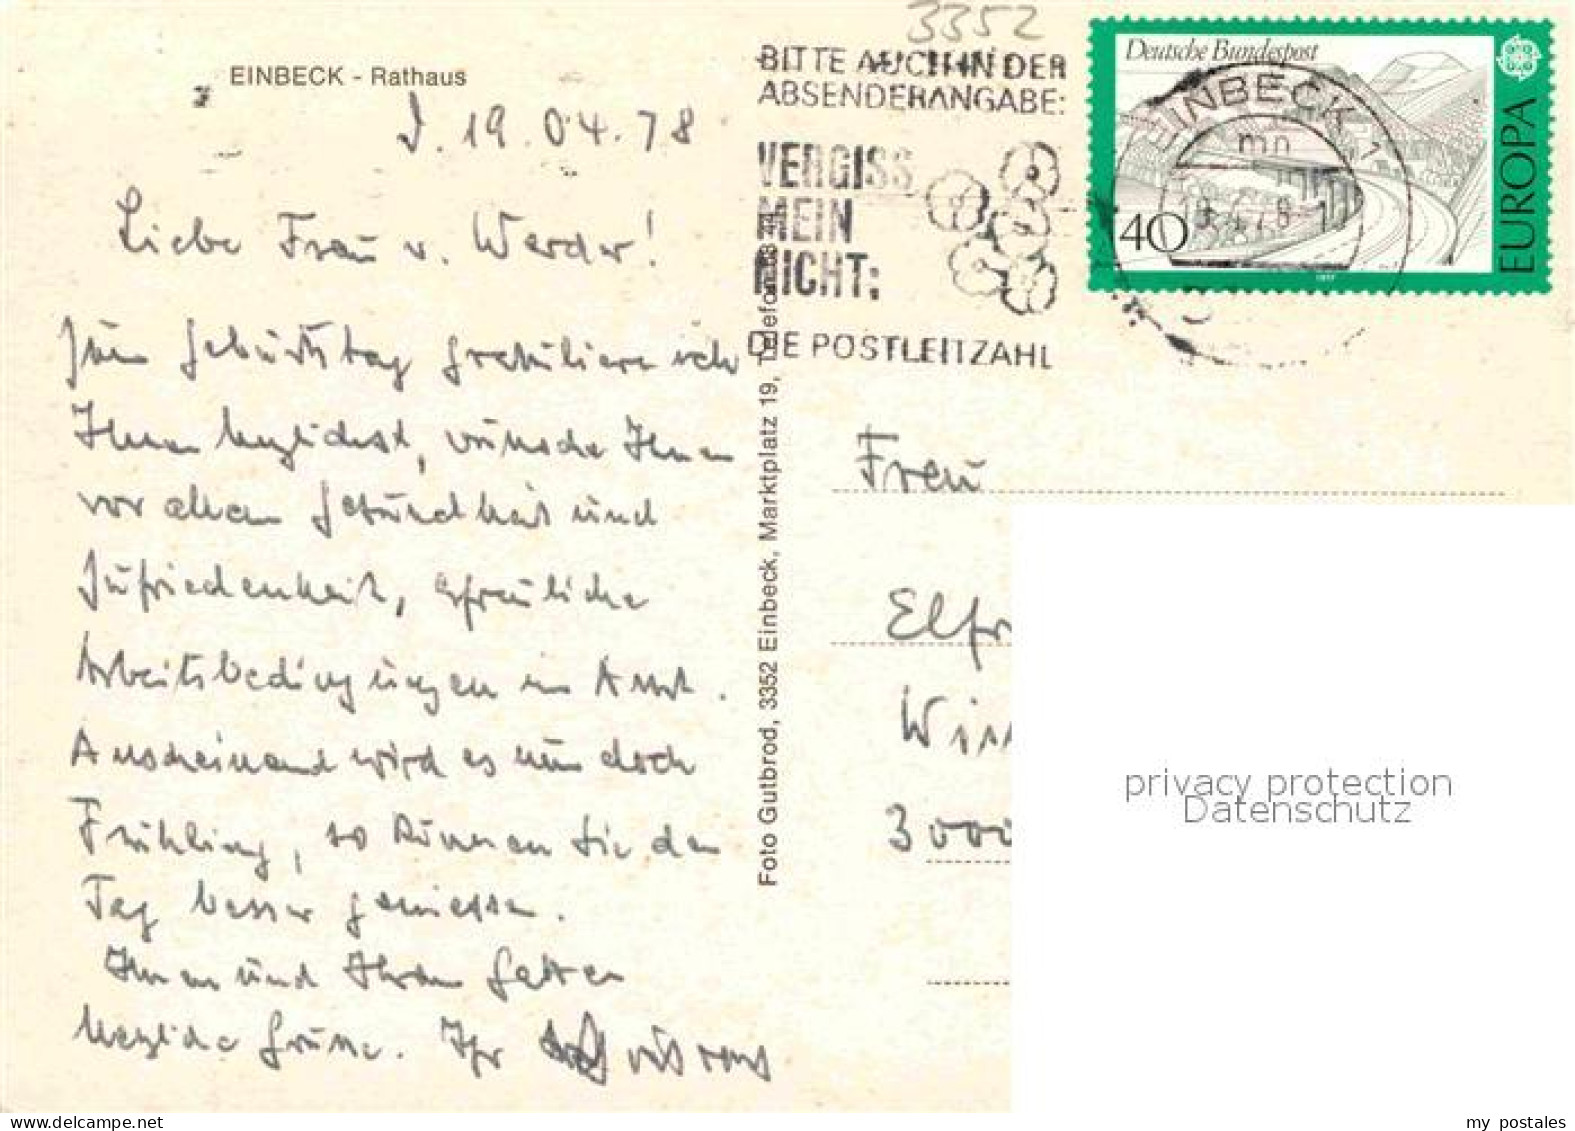 3352
EINBECK - Rathaus
19.04.78
Liebe Frau v. Werder!
Zum Geburtstag gratuliere ich
Ihnen herzlichst, wünsche Ihnen
vor allem Gesundheit und
Zufriedenheit, erfreuliche
Arbeitsbedingungen im Amt.
Anscheinend wird es nun doch
Frühling, so können Sie den
Tag besser geniessen.
Ihnen und Ihrem Gatten
herzliche Grüsse. Ihr
Foto Gutbrod, 3352 Einbeck, Marktplatz 19, Telefon
BITTE AUCH IN DER
ABSENDERANGABE:
VERGISS
MEIN
NICHT:
DIE POSTLEITZAHL
Deutsche Bundespost
40
EUROPA
1977
EINBECK 1
mn
Frau
Elfr
3000
privacy protection
Datenschutz
my postales